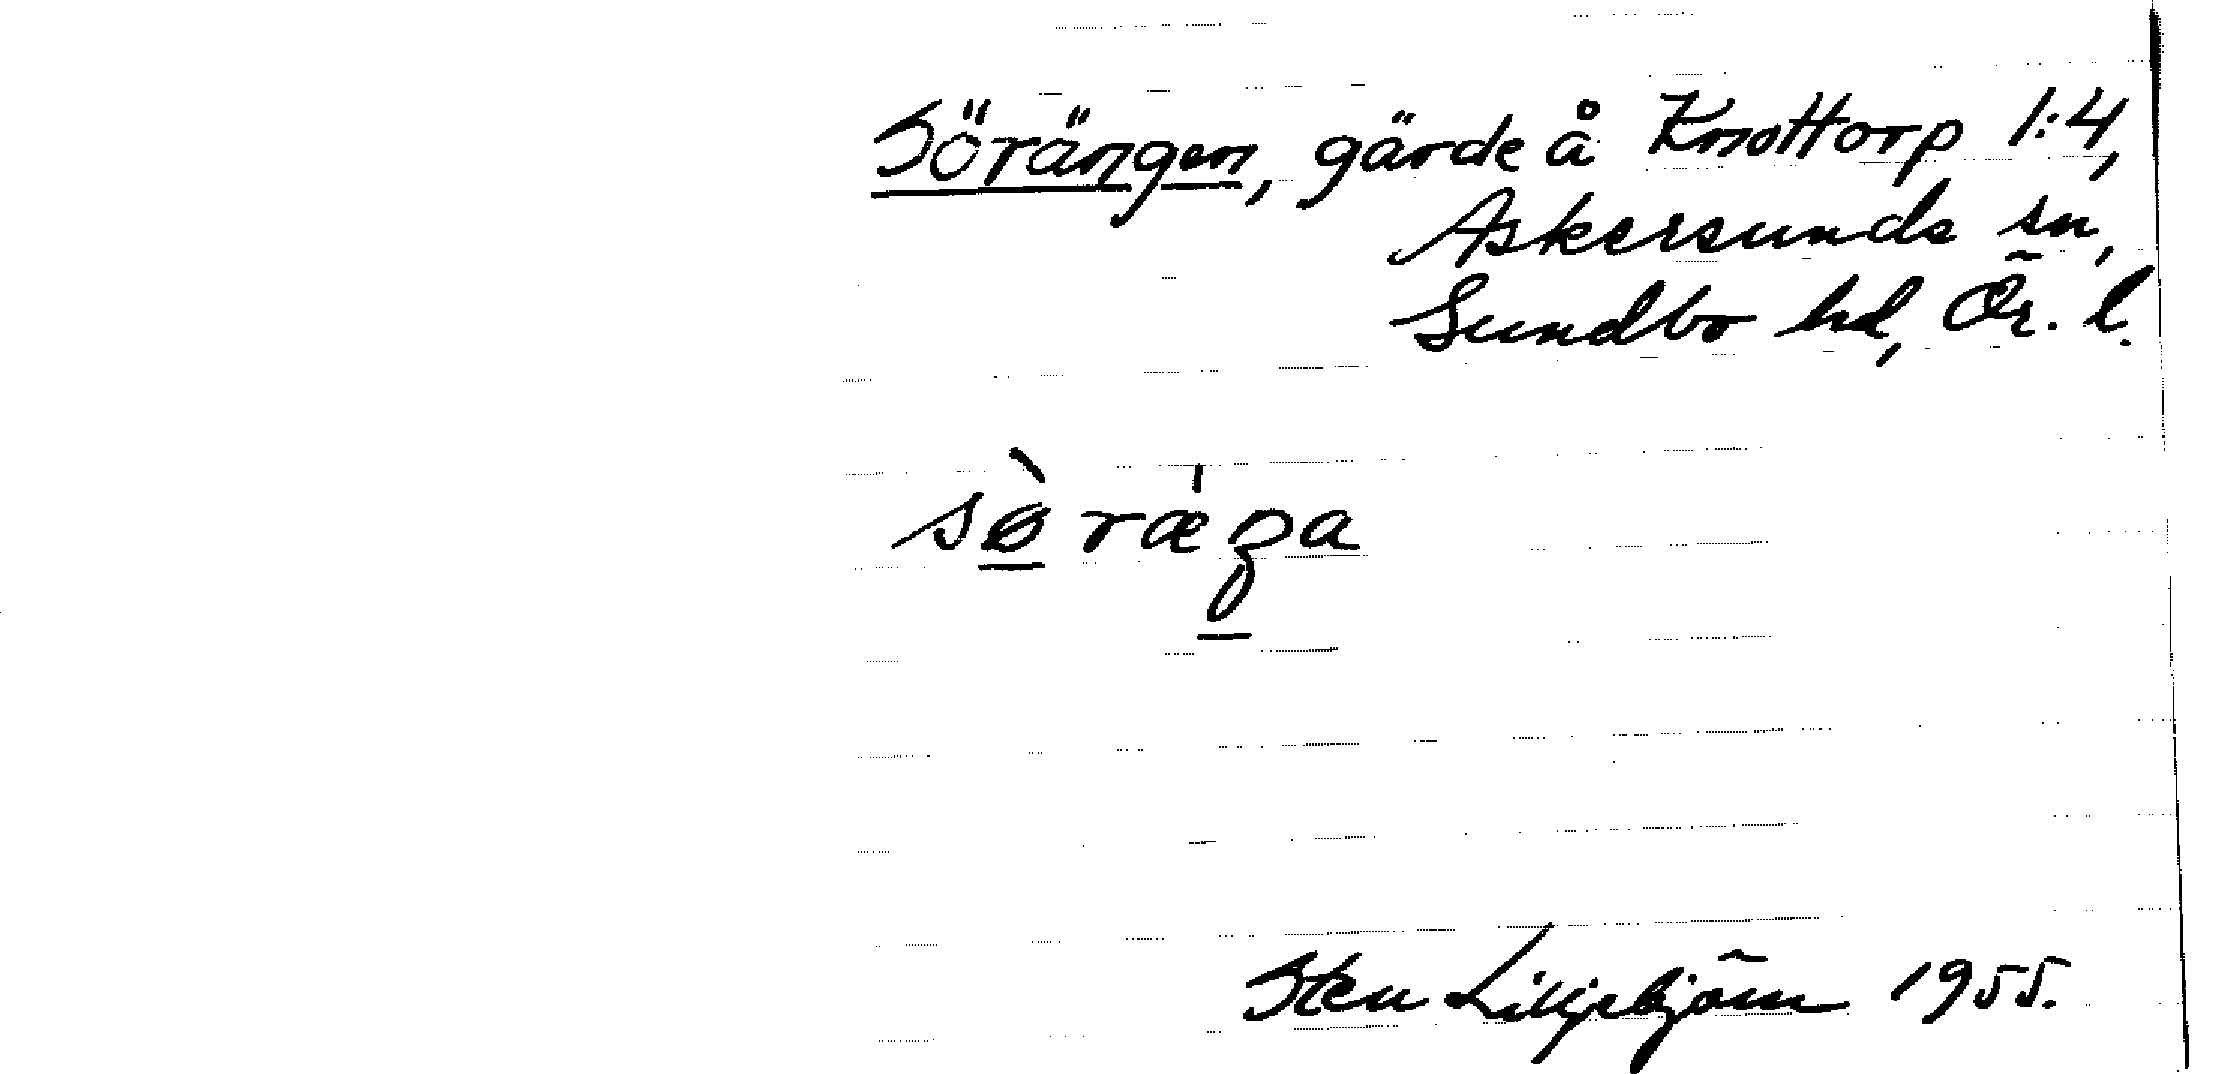 Sörängen, gärde å Knottorp 1:4,
Askersunds sn,
Sundbo hd, Ör. l.
sø̀ræ̍ŋa
Sten Liljebjörn 1955.